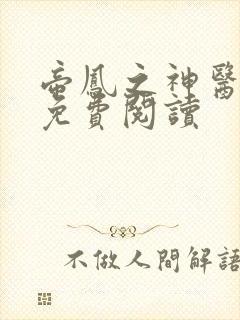 蛮鳳之神醫
免費閱讀
不做人間解語